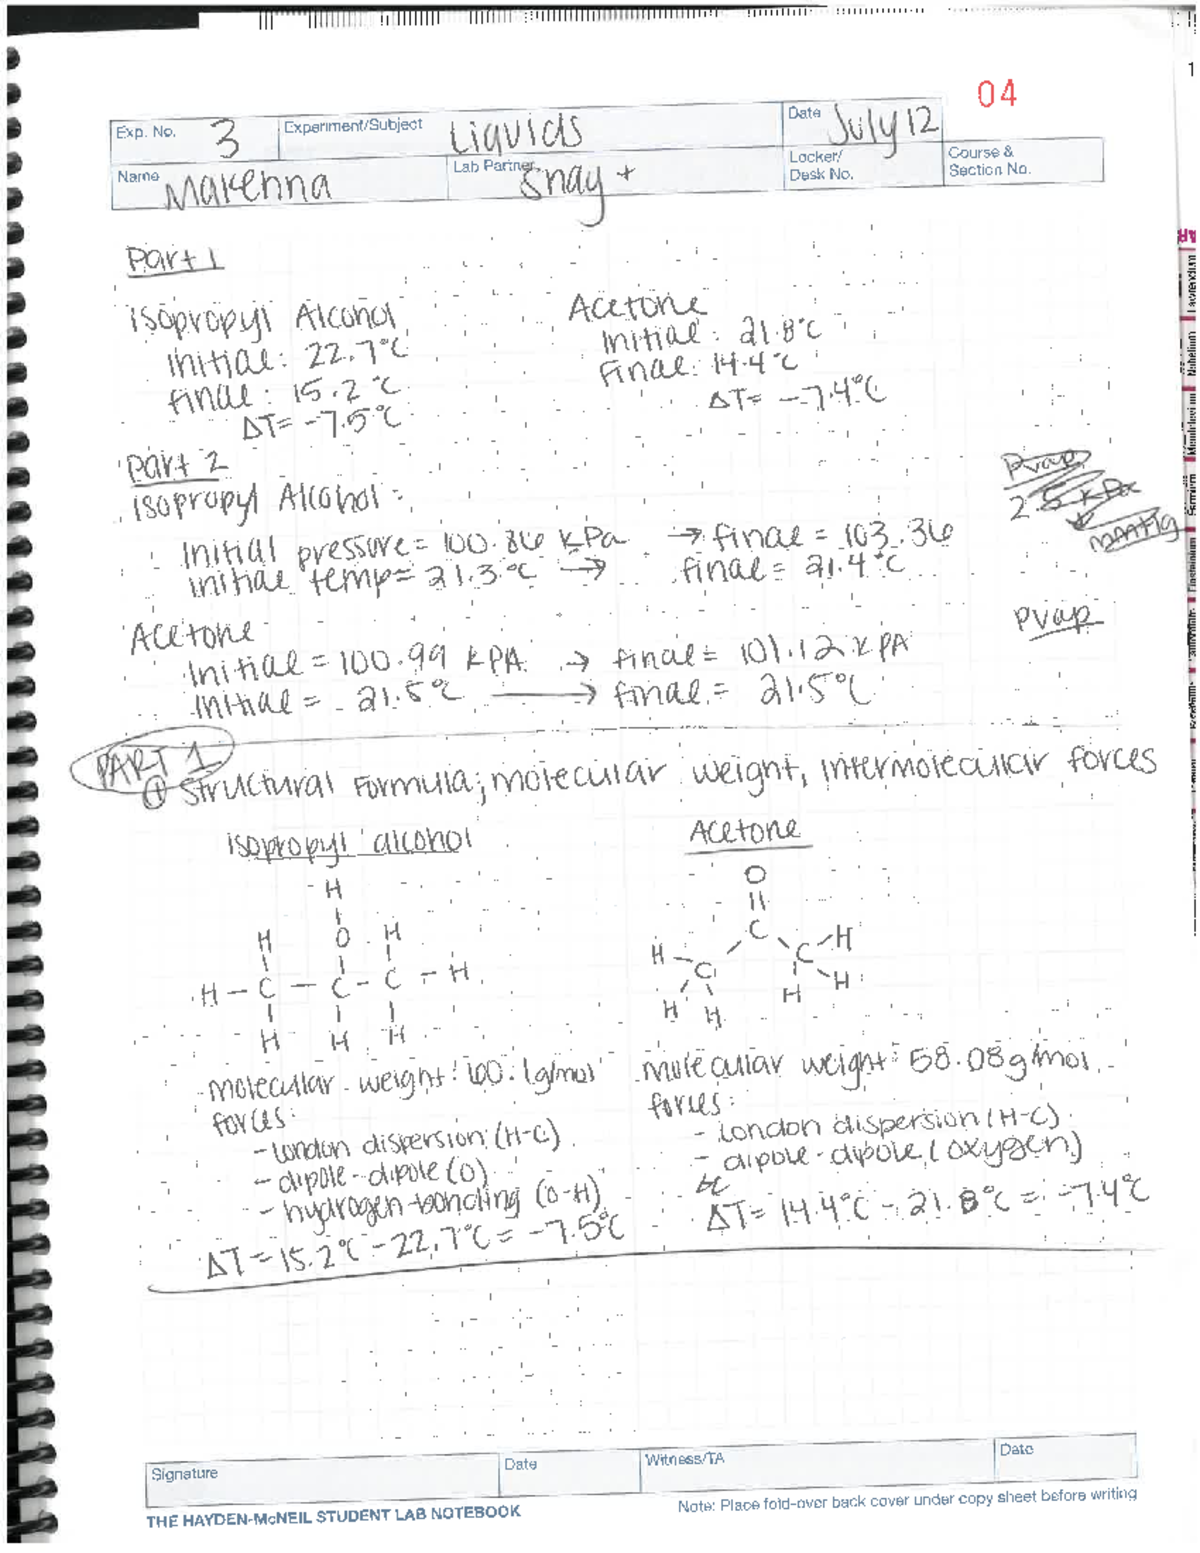 04
Exp. No. 3 Experiment/Subject Liquids Date July 12
Name Makenna Lab Partner Shay + Locker/ Desk No. Course & Section No.
Part 1
Isopropyl Alcohol
Initial: 22.7°C
final: 15.2°C
ΔT= -7.5°C
Acetone
Initial: 21.8°C
Final: 14.4°C
ΔT= -7.4°C
Part 2
Isopropyl Alcohol:
Initial pressure = 100.86 kPa → final = 103.36
initial temp = 21.3°C → final = 21.4°C
Pvap
2.5 kPa
mmHg
Acetone
Initial = 100.99 kPA → final = 101.12 kPA
Initial = 21.5°C → final = 21.5°C
Pvap
PART 1
① Structural Formula; molecular weight, intermolecular forces
isopropyl alcohol
H
H O H
H - C - C - C - H
H H H
molecular weight: 60.1g/mol
forces:
- London dispersion (H-C)
- dipole-dipole (O)
- hydrogen-bonding (O-H)
ΔT = 15.2°C - 22.7°C = -7.5°C
Acetone
O
C
H C C H
H H H H
molecular weight: 58.08g/mol
forces:
- London dispersion (H-C)
- dipole-dipole (oxygen)
ΔT = 14.4°C - 21.8°C = -7.4°C
Signature Date Witness/TA Date
THE HAYDEN-McNEIL STUDENT LAB NOTEBOOK
Note: Place fold-over back cover under copy sheet before writing